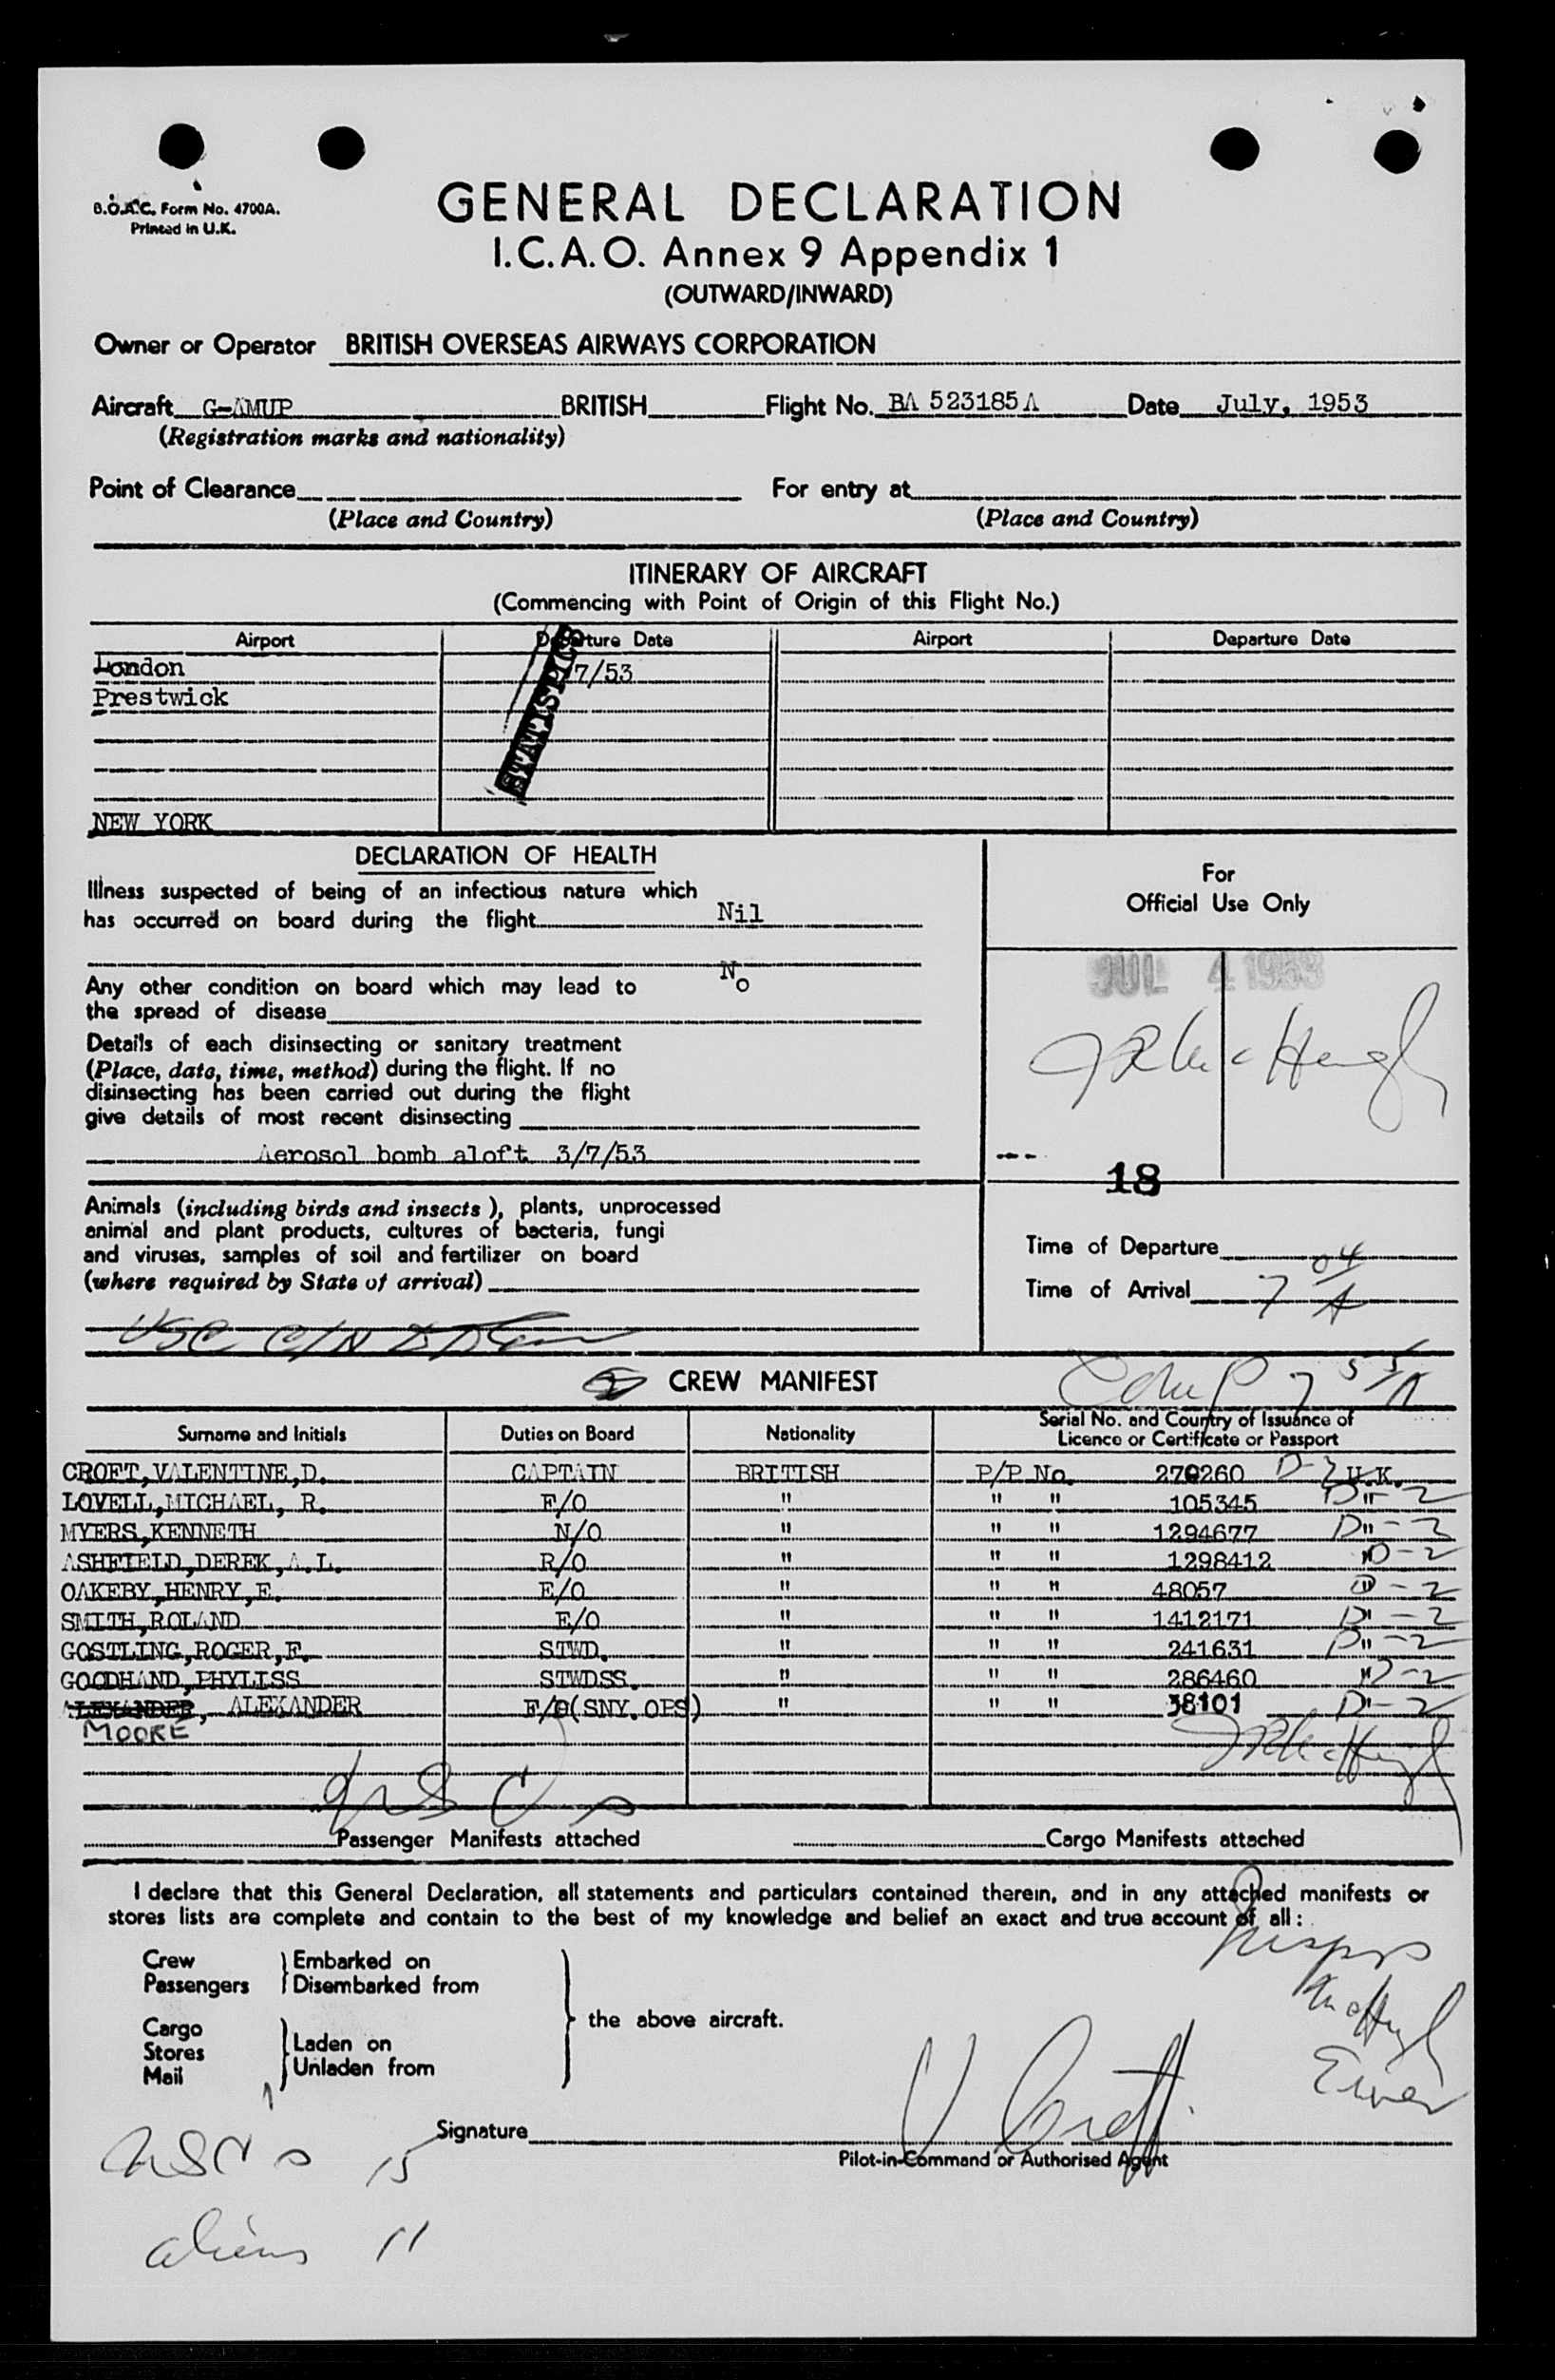 B.O.A.C. Form No. 4700A.
Printed in U.K.
GENERAL DECLARATION
I.C.A.O. Annex 9 Appendix 1
(OUTWARD/INWARD)
Owner or Operator BRITISH OVERSEAS AIRWAYS CORPORATION
Aircraft G-AMUP BRITISH Flight No. BA 523185A Date July, 1953
(Registration marks and nationality)
Point of Clearance For entry at
(Place and Country) (Place and Country)
ITINERARY OF AIRCRAFT
(Commencing with Point of Origin of this Flight No.)
Airport Departure Date Airport Departure Date
London 7/53
Prestwick
STATISTICS
NEW YORK
DECLARATION OF HEALTH
Illness suspected of being of an infectious nature which
has occurred on board during the flight Nil
Any other condition on board which may lead to No
the spread of disease
Details of each disinsecting or sanitary treatment
(Place, date, time, method) during the flight. If no
disinsecting has been carried out during the flight
give details of most recent disinsecting
Aerosol bomb aloft 3/7/53
Animals (including birds and insects), plants, unprocessed
animal and plant products, cultures of bacteria, fungi
and viruses, samples of soil and fertilizer on board
(where required by State of arrival)
For
Official Use Only
JUL 4 1953
18
Time of Departure
Time of Arrival 7 04 A
CREW MANIFEST
Surname and Initials Duties on Board Nationality Serial No. and Country of Issuance of
Licence or Certificate or Passport
CROFT, VALENTINE, D. CAPTAIN BRITISH P/P No. 270260 D-2 U.K.
LOVELL, MICHAEL, R. F/O " " " 105345 D-2 "
MYERS, KENNETH N/O " " " 1294677 D-2 "
ASHFIELD, DEREK, A.L. R/O " " " 1298412 D-2 "
OAKEBY, HENRY, E. E/O " " " 48057 D-2 "
SMITH, ROLAND E/O " " " 1412171 D-2 "
GOSTLING, ROGER, F. STWD. " " " 241631 D-2 "
GOODHAND, PHYLISS STWDSS. " " " 286460 D-2 "
ALEXANDER, ALEXANDER F/O(SNY.OPS) " " " 38101 D-2 "
MOORE
Passenger Manifests attached Cargo Manifests attached
I declare that this General Declaration, all statements and particulars contained therein, and in any attached manifests or
stores lists are complete and contain to the best of my knowledge and belief an exact and true account of all:
Crew Embarked on
Passengers Disembarked from
the above aircraft.
Cargo
Stores Laden on
Mail Unladen from
Signature V Croft
Pilot-in-Command or Authorised Agent
15
aliens 11